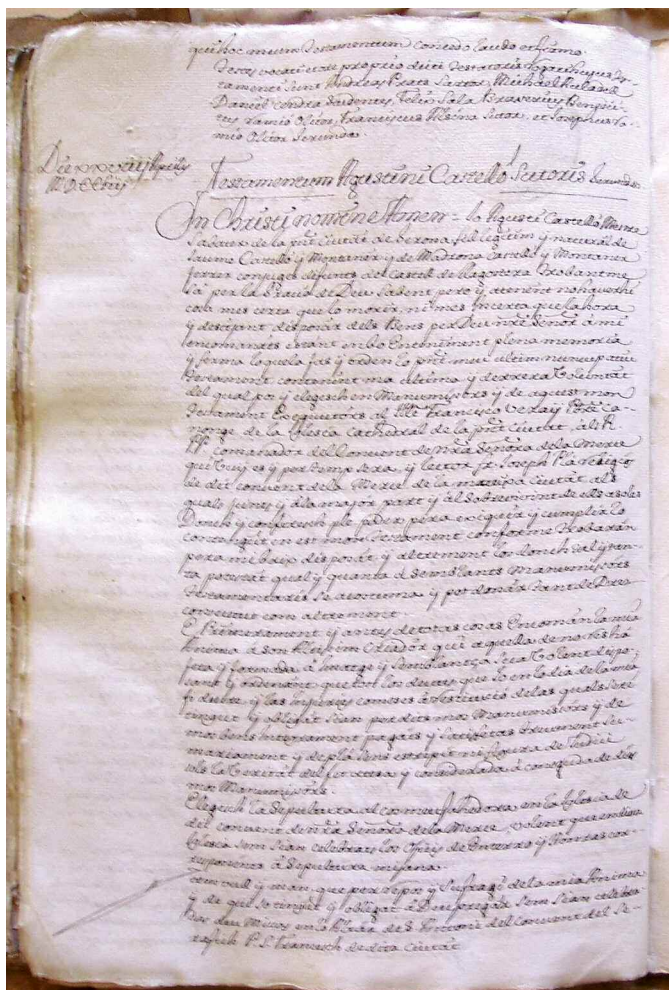 qui hoc meum Testamentum concedo laudo et firmo.
Testes vocati et ore proprio dicti Testatoris rogati hujus Tes-
tamenti sunt Andreas Prats Sartor, Michael
Daniel Studentes, Felix Sala
Ramio Olitor, Franciscus Alsina Sutor, et Josephus Ra-
mio Olitor Gerundæ.
Die xxviiij Aprilis
M.D.CCLiij
Testamentum Agustini Castelló Sutoris Gerundæ
In Christi nomine Amen = Jo Agustí Castelló Mestre
Sabater de la pñt Ciutat de Gerona fill llegitim y natural de
Jaume Castelló y Montaner y de Madrona Castelló y Montaner
Ferrer conjuges difunts del Castell de Llagostera trobantme
Cá per la Gracia de Deu Sabent pero y atenent no haverhi
cosa mes certa que lo morir, ni mes incerta que la hora
y desitjant disposár dels Bens per Deu nrē Señor á mi
encomanats estant en lo Enteniment plena memoria
y ferma loquela fas y orden lo pñt meu ultim nuncupatiu
Testament contenint ma ultima y derrera Voluntat
del qual pos y elegesch en Manumissors y de aquest mon
Testament Exequutors al Francisco Veray Pbrē Ca-
nonge de la Iglesia Cathedral de la pñt Ciutat, al R.
Pr. Comanador del Convent de nrā Señora de la Merce
que vuy es y per temps sera, y lector fr. Joseph Plá religiós
de dit convent de la Merce de la mateixa Ciutat als
quals junts y á la major part y al sobrevivint de ells a soles
Donch y conferesch ple poder pera exequir y cumplir lo
contengut en est mon Testament conforme trobaran
per mi baix disposat y altrement los donch tal y tan-
ta potestat qual y quanta á semblants Manumissors
Testamentaris se acostuma y pot donár tant de Dret
consuetut com altrement.
E Primerament y antes de totas cosas Encomán la mia
Anima á son Altissim Criador qui aquella de no res há
feta y formada á imatge y semblança sua Volent dispo-
sant y ordenant que tots los deutes que Jo en lo dia de la mia
fi deure, y las injurias comeses á restitució de las quals seré
tingut y obligát sian per dits mos Manumissors y de
mos bens integrament pagats y satisfetas breument su-
mariament y de plá sens estrepit ni figura de Judici
sols la Veritat del fet attesa y considerada á coneguda de dits
mos Manumissors.
Elegesch la Sepultura al cos meu fahedora en la Iglesia de
dit Convent de nrā Señora de la Merce, volent que en dita
Iglesia sem sian celebrats los oficis de Enterro y Honras cor-
responents á sepultura mijana.
Item vull y man, que per repos y sufragi de la mia Anima
y de qui so tingut y obligat á Deu pregár sem sian celebra-
das deu Missas en lo Altar de S. Antoni del Convent del Se-
rafich P. S. Francesch de dita Ciutát